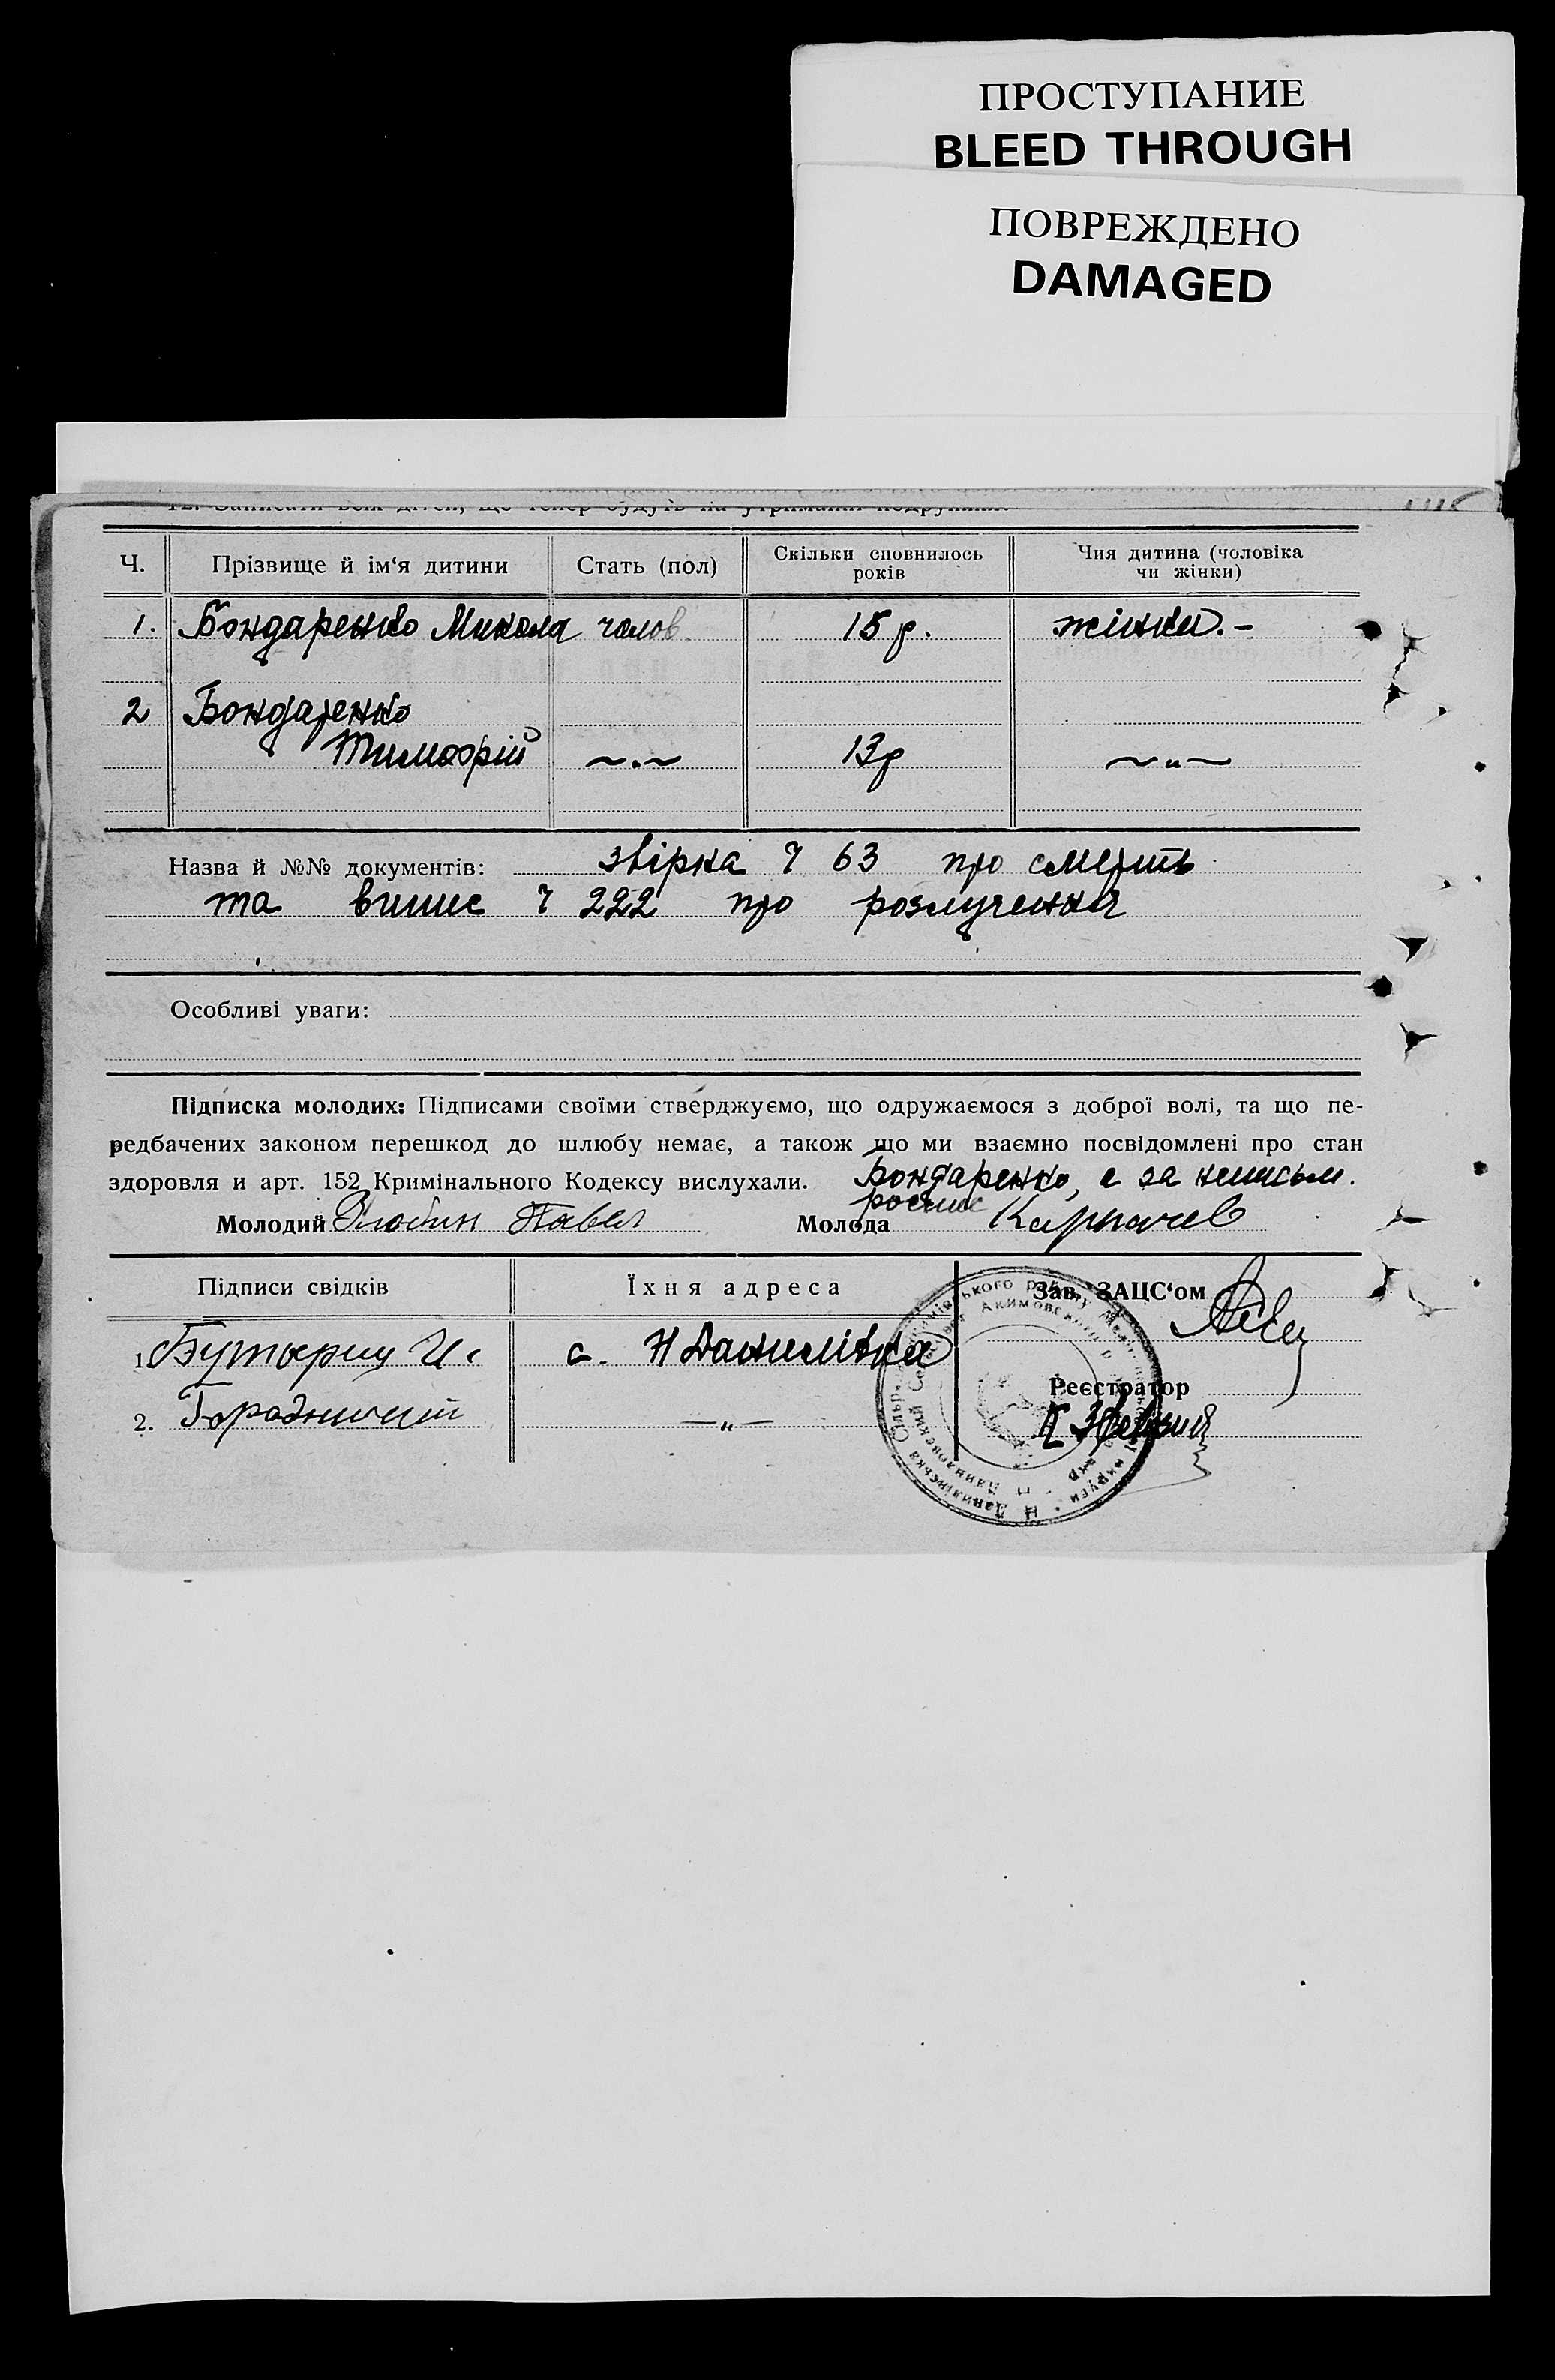 ПРОСТУПАНИЕ
BLEED THROUGH
ПОВРЕЖДЕНО
DAMAGED
12. Записати всіх дітей, що тепер будуть на утриманні подружжя:
Ч. Прізвище й ім‘я дитини Стать (пол) Скільки сповнилось років Чия дитина (чоловіка чи жінки)
1. Бондаренко Микола чолов. 15 р. жінки.-
2 Бондаренко
Тимофій ~.~ 13р ~„~
Назва й №№ документів: звірка Ч 63 про смерть
та випис Ч 222 про розлучення
Особливі уваги:
Підписка молодих: Підписами своїми стверджуємо, що одружаємося з доброї волі, та що пе-
редбачених законом перешкод до шлюбу немає, а також що ми взаємно посвідомлені про стан
здоровля и арт. 152 Кримінального Кодексу вислухали. Бондаренко, а за неписьм.
Молодий Павел Молода розпис
Підписи свідків Їхня адреса Зав. ЗАЦС‘ом
1. с. Н Данилівка
Реєстратор
2. —„—